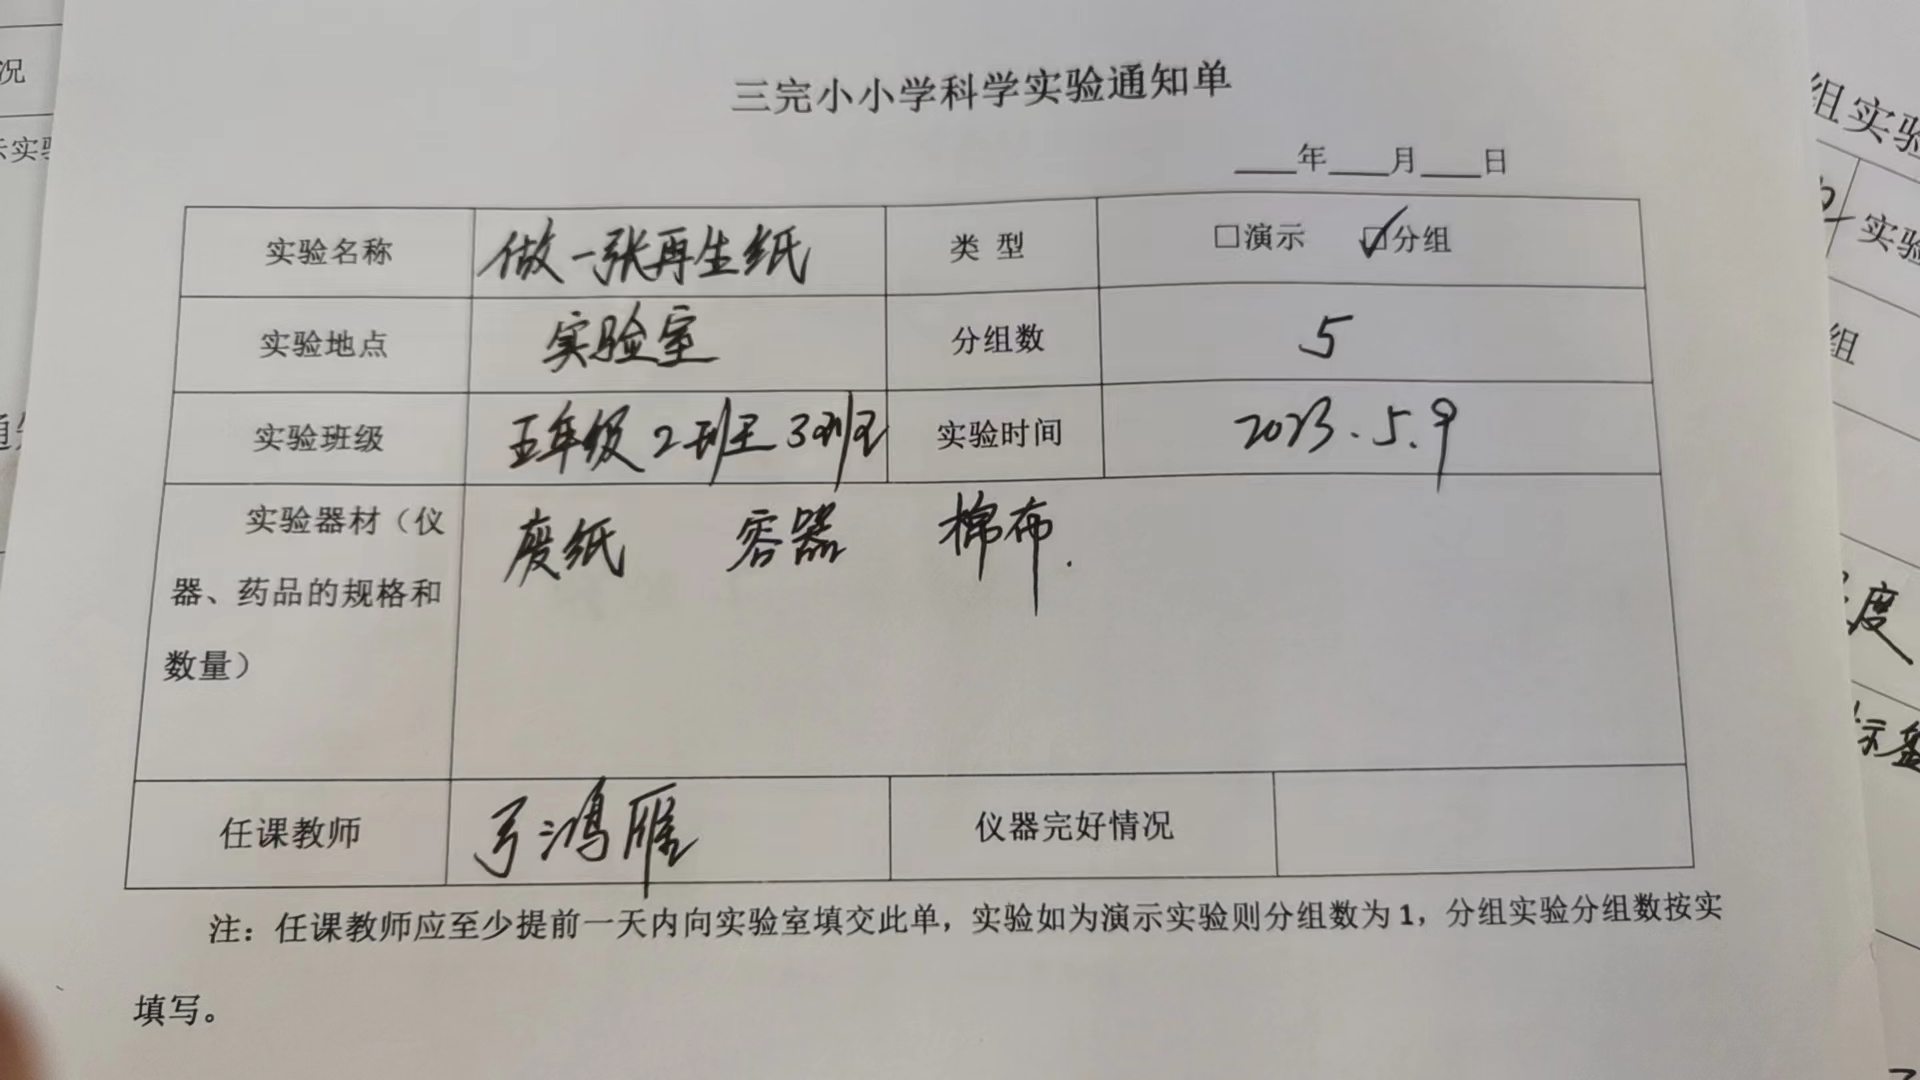 三完小小学科学实验通知单
____年____月____日
实验名称 做一张再生纸 类 型 □演示 ☑分组
实验地点 实验室 分组数 5
实验班级 五年级2班至3班 实验时间 2023.5.9
实验器材（仪
器、药品的规格和
数量）
废纸 容器 棉布.
任课教师 弓鸿雁 仪器完好情况
注：任课教师应至少提前一天内向实验室填交此单，实验如为演示实验则分组数为1，分组实验分组数按实
填写。
况
示实
组实验
实验
组
度
示盘